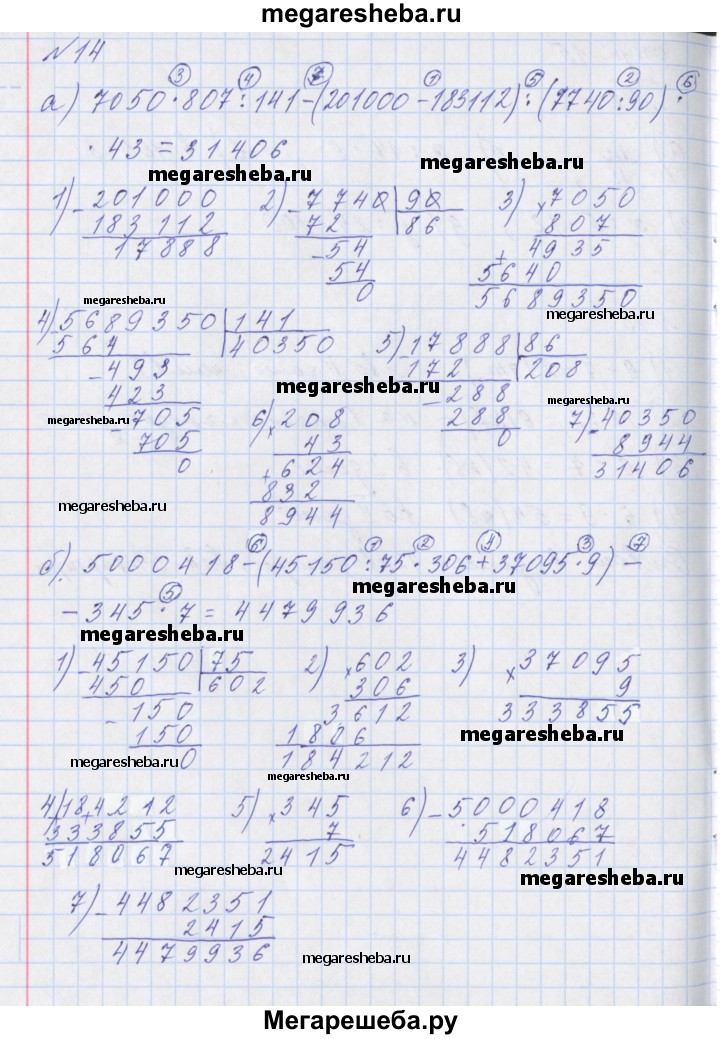 megaresheba.ru
№14
③ ④ ⑦ ① ⑤ ② ⑥
а) 7050·807:141-(201000-183112):(7740:90)·
·43=31406
megaresheba.ru
1) -201000 2) -7740|90 3) ×7050
183112 72 |86 807
17888 -54 +4935
54 5640
0 5689350
megaresheba.ru megaresheba.ru
4) 5689350|141 5) -17888|86
564 |40350 172 |208
megaresheba.ru
-493 -288
423 288
megaresheba.ru
-705 6) ×208 0 7) -40350
705 43 8944
0 +624 31406
832
8944
megaresheba.ru megaresheba.ru
⑥ ① ② ④ ③ ⑦
б). 5000418-(45150:75·306+37095·9)-
megaresheba.ru
⑤
-345·7=4479936
megaresheba.ru
1) -45150|75 2) ×602 3) ×37095
450 |602 306 9
-150 3612 333855
150 1806
0 184212
megaresheba.ru megaresheba.ru megaresheba.ru
4) +184212 5) ×345 6) -5000418
333855 7 518067
518067 2415 4482351
megaresheba.ru megaresheba.ru
7) -4482351
2415
4479936
megaresheba.ru
Мегарешеба.ру